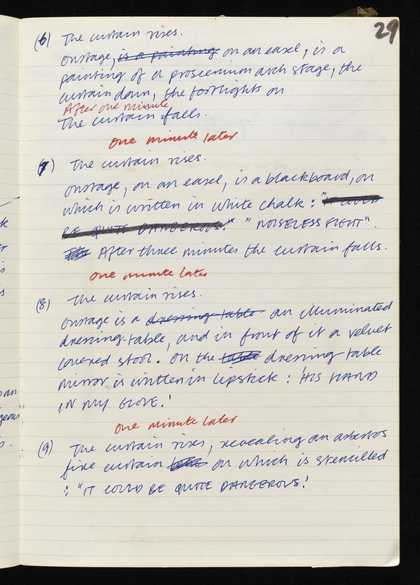 29
(6) The curtain rises.
Onstage, is a painting on an easel, is a
painting of a proscenium arch stage, the
curtain down, the footlights on
After one minute
The curtain falls.
One minute later
7) The curtain rises.
Onstage, on an easel, is a blackboard, on
which is written in white chalk: "
BE QUITE DANGEROUS." "NOISELESS FIGHT".
After three minutes the curtain falls.
One minute later
(8) The curtain rises.
Onstage is a dressing table an illuminated
dressing table, and in front of it a velvet
covered stool. On the table dressing table
mirror is written in lipstick: 'HIS HAND
IN MY GLOVE.'
One minute later
(9) The curtain rises, revealing an asbestos
fire curtain on which is stencilled
: "IT COULD BE QUITE DANGEROUS.'